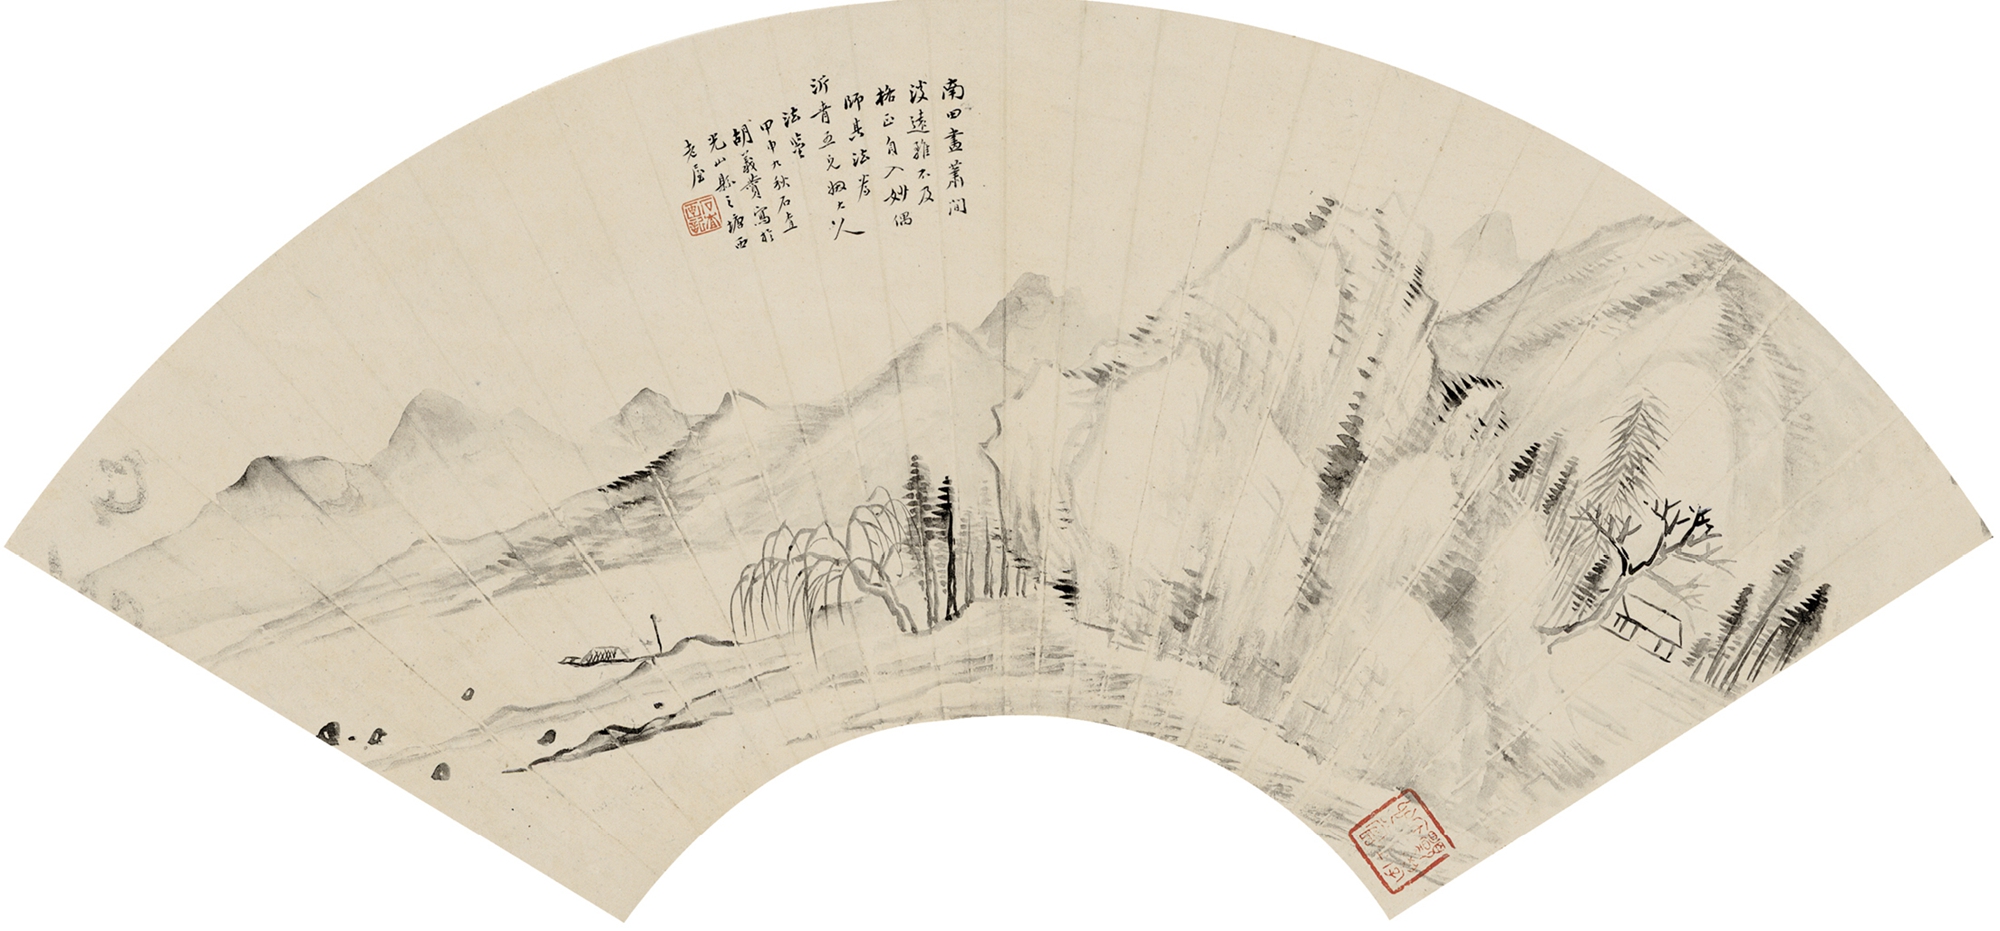 南田畫蕭閒
淡遠雖不及
格正自入妙偶
師其法為
沂青五兄姻大人
法鑒
甲申九秋石查
胡義贊寫於
光山縣之塘西
老屋